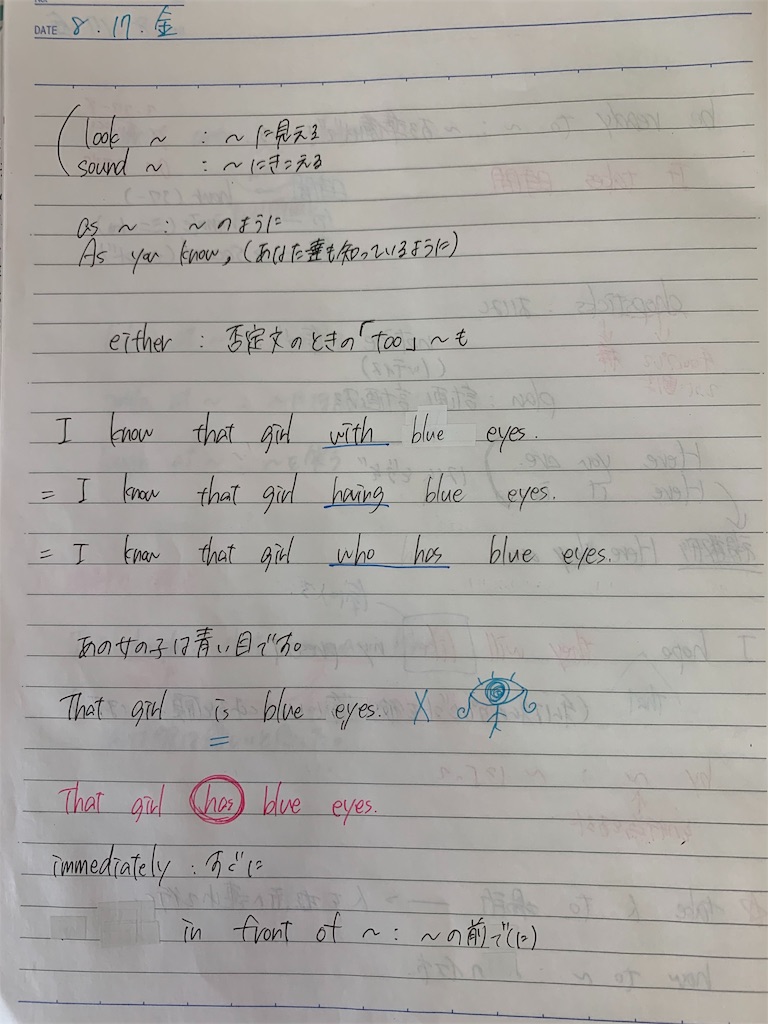 DATE 8・17・金
look ~ : ~に見える
sound ~ : ~にきこえる
as ~ : ~のように
As you know, (あなた達も知っているように)
either : 否定文のときの「too」~も
I know that girl with blue eyes.
= I know that girl having blue eyes.
= I know that girl who has blue eyes.
あの女の子は青い目です。
That girl is blue eyes. X
That girl has blue eyes.
immediately : すぐに
in front of ~ : ~の前で(に)